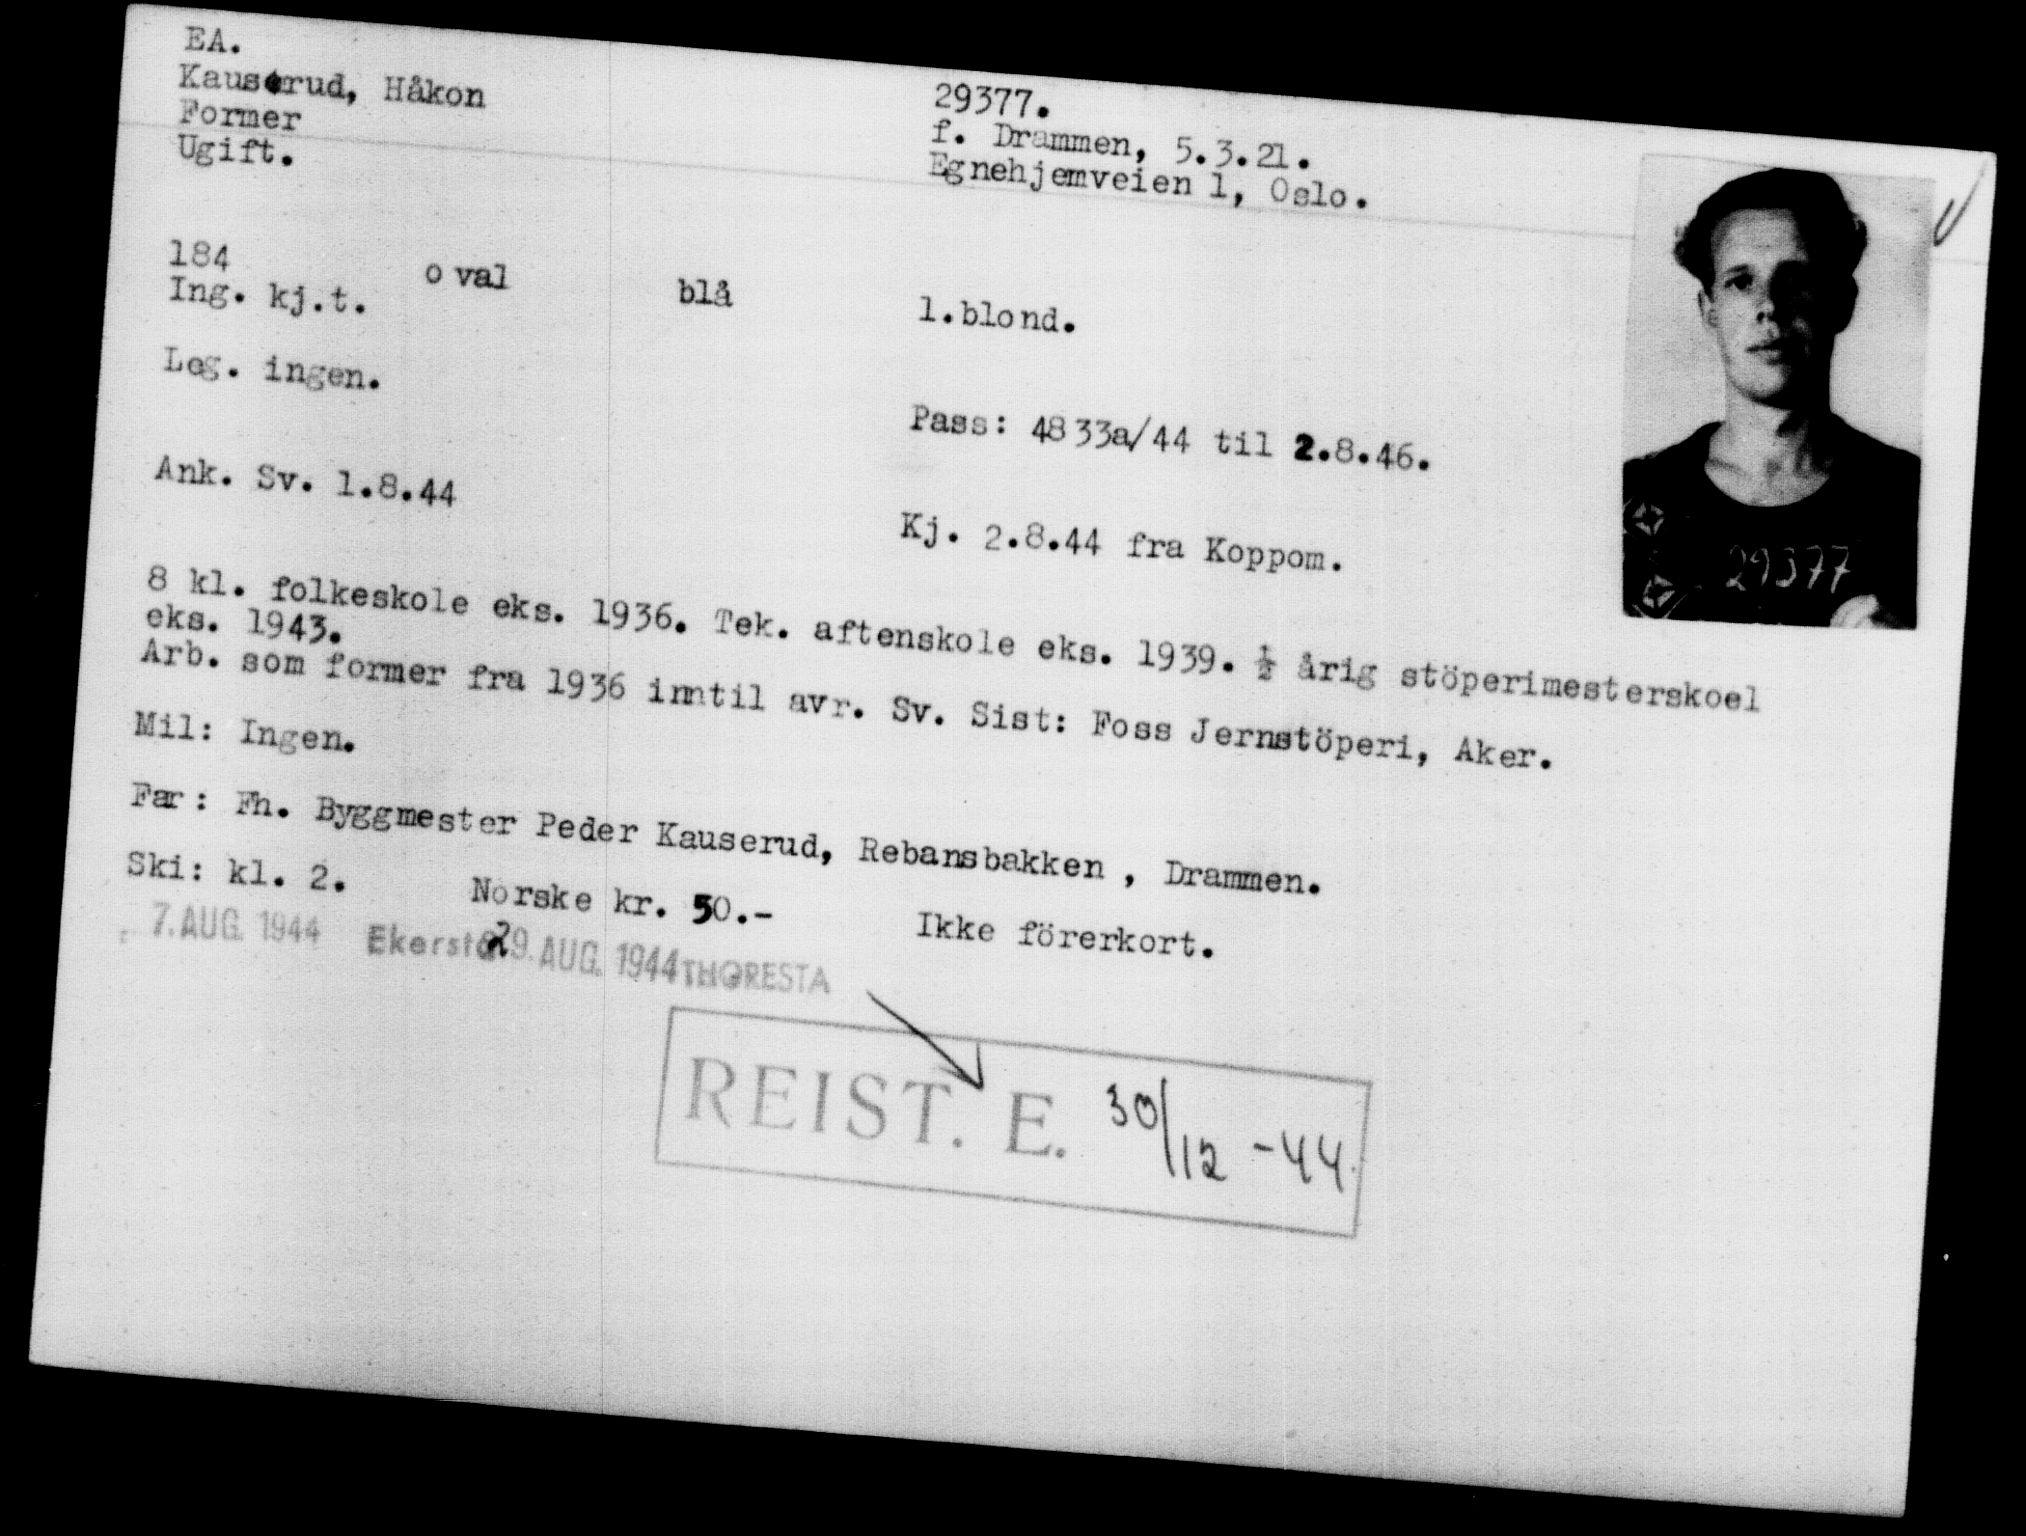 EA.
Kauserud, Håkon
Former
Ugift.
29377.
f. Drammen, 5.3.21.
Egnehjemveien 1, Oslo.
184 oval blå l.blond.
Ing. kj.t.
Leg. ingen.
Pass: 4833a/44 til 2.8.46.
Ank. Sv. 1.8.44
Kj. 2.8.44 fra Koppom.
29377
8 kl. folkeskole eks. 1936. Tek. aftenskole eks. 1939. ½ årig stöperimesterskoel
eks. 1943.
Arb. som former fra 1936 inntil avr. Sv. Sist: Foss Jernstöperi, Aker.
Mil: Ingen.
Far: Fh. Byggmester Peder Kauserud, Rebansbakken , Drammen.
Ski: kl. 2. Norske kr. 50.- Ikke förerkort.
7. AUG. 1944 29. AUG. 1944 THORESTA
REIST. E. 30/12 -44.